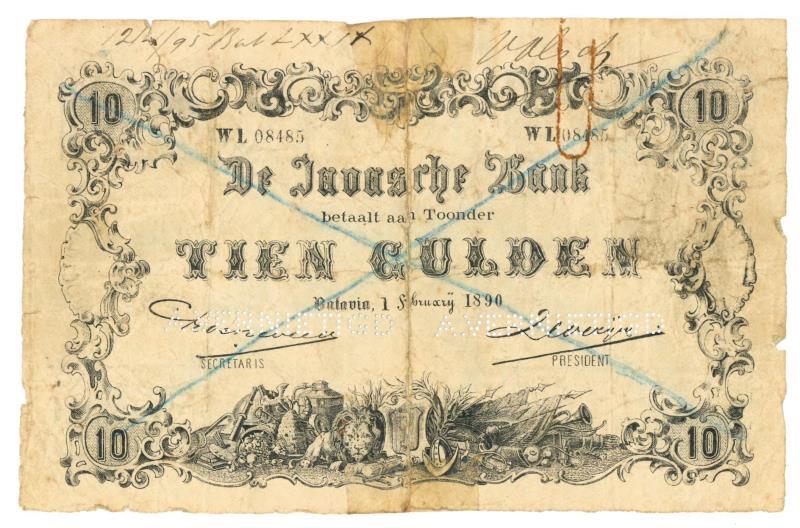 12/4/95 Bat LXXIX Valsch
10 10
WL 08485 WL 08485
De Javasche Bank
betaalt aan Toonder
TIEN GULDEN
Batavia, 1 Februarij 1890
VERNIETIGD A.VERNIETIGD
SECRETARIS PRESIDENT
10 10